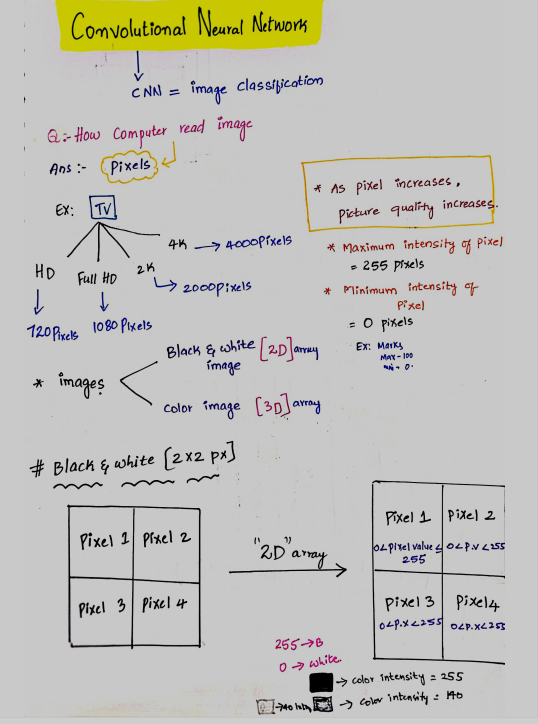 Convolutional Neural Network
CNN = image classification
Q:- How Computer read image
Ans :- Pixels
Ex: TV
HD
Full HD
2K
4K → 4000Pixels
→ 2000pixels
720 Pixels
1080 Pixels
* As pixel increases,
picture quality increases.
* Maximum intensity of pixel
= 255 pixels
* Minimum intensity of
Pixel
= 0 pixels
Ex: Marks
Max - 100
- 0.
* images
Black & white [2D] array
image
Color image [3D] array
# Black & white [2x2 px]
Pixel 1 Pixel 2
Pixel 3 Pixel 4
"2D" array
Pixel 1 Pixel 2
0<pixel value ≤ 0<P.V<255
255
Pixel 3 Pixel 4
0<P.x<255 0<P.x<255
255 → B
0 → white.
→ color intensity = 255
→ color intensity = 140